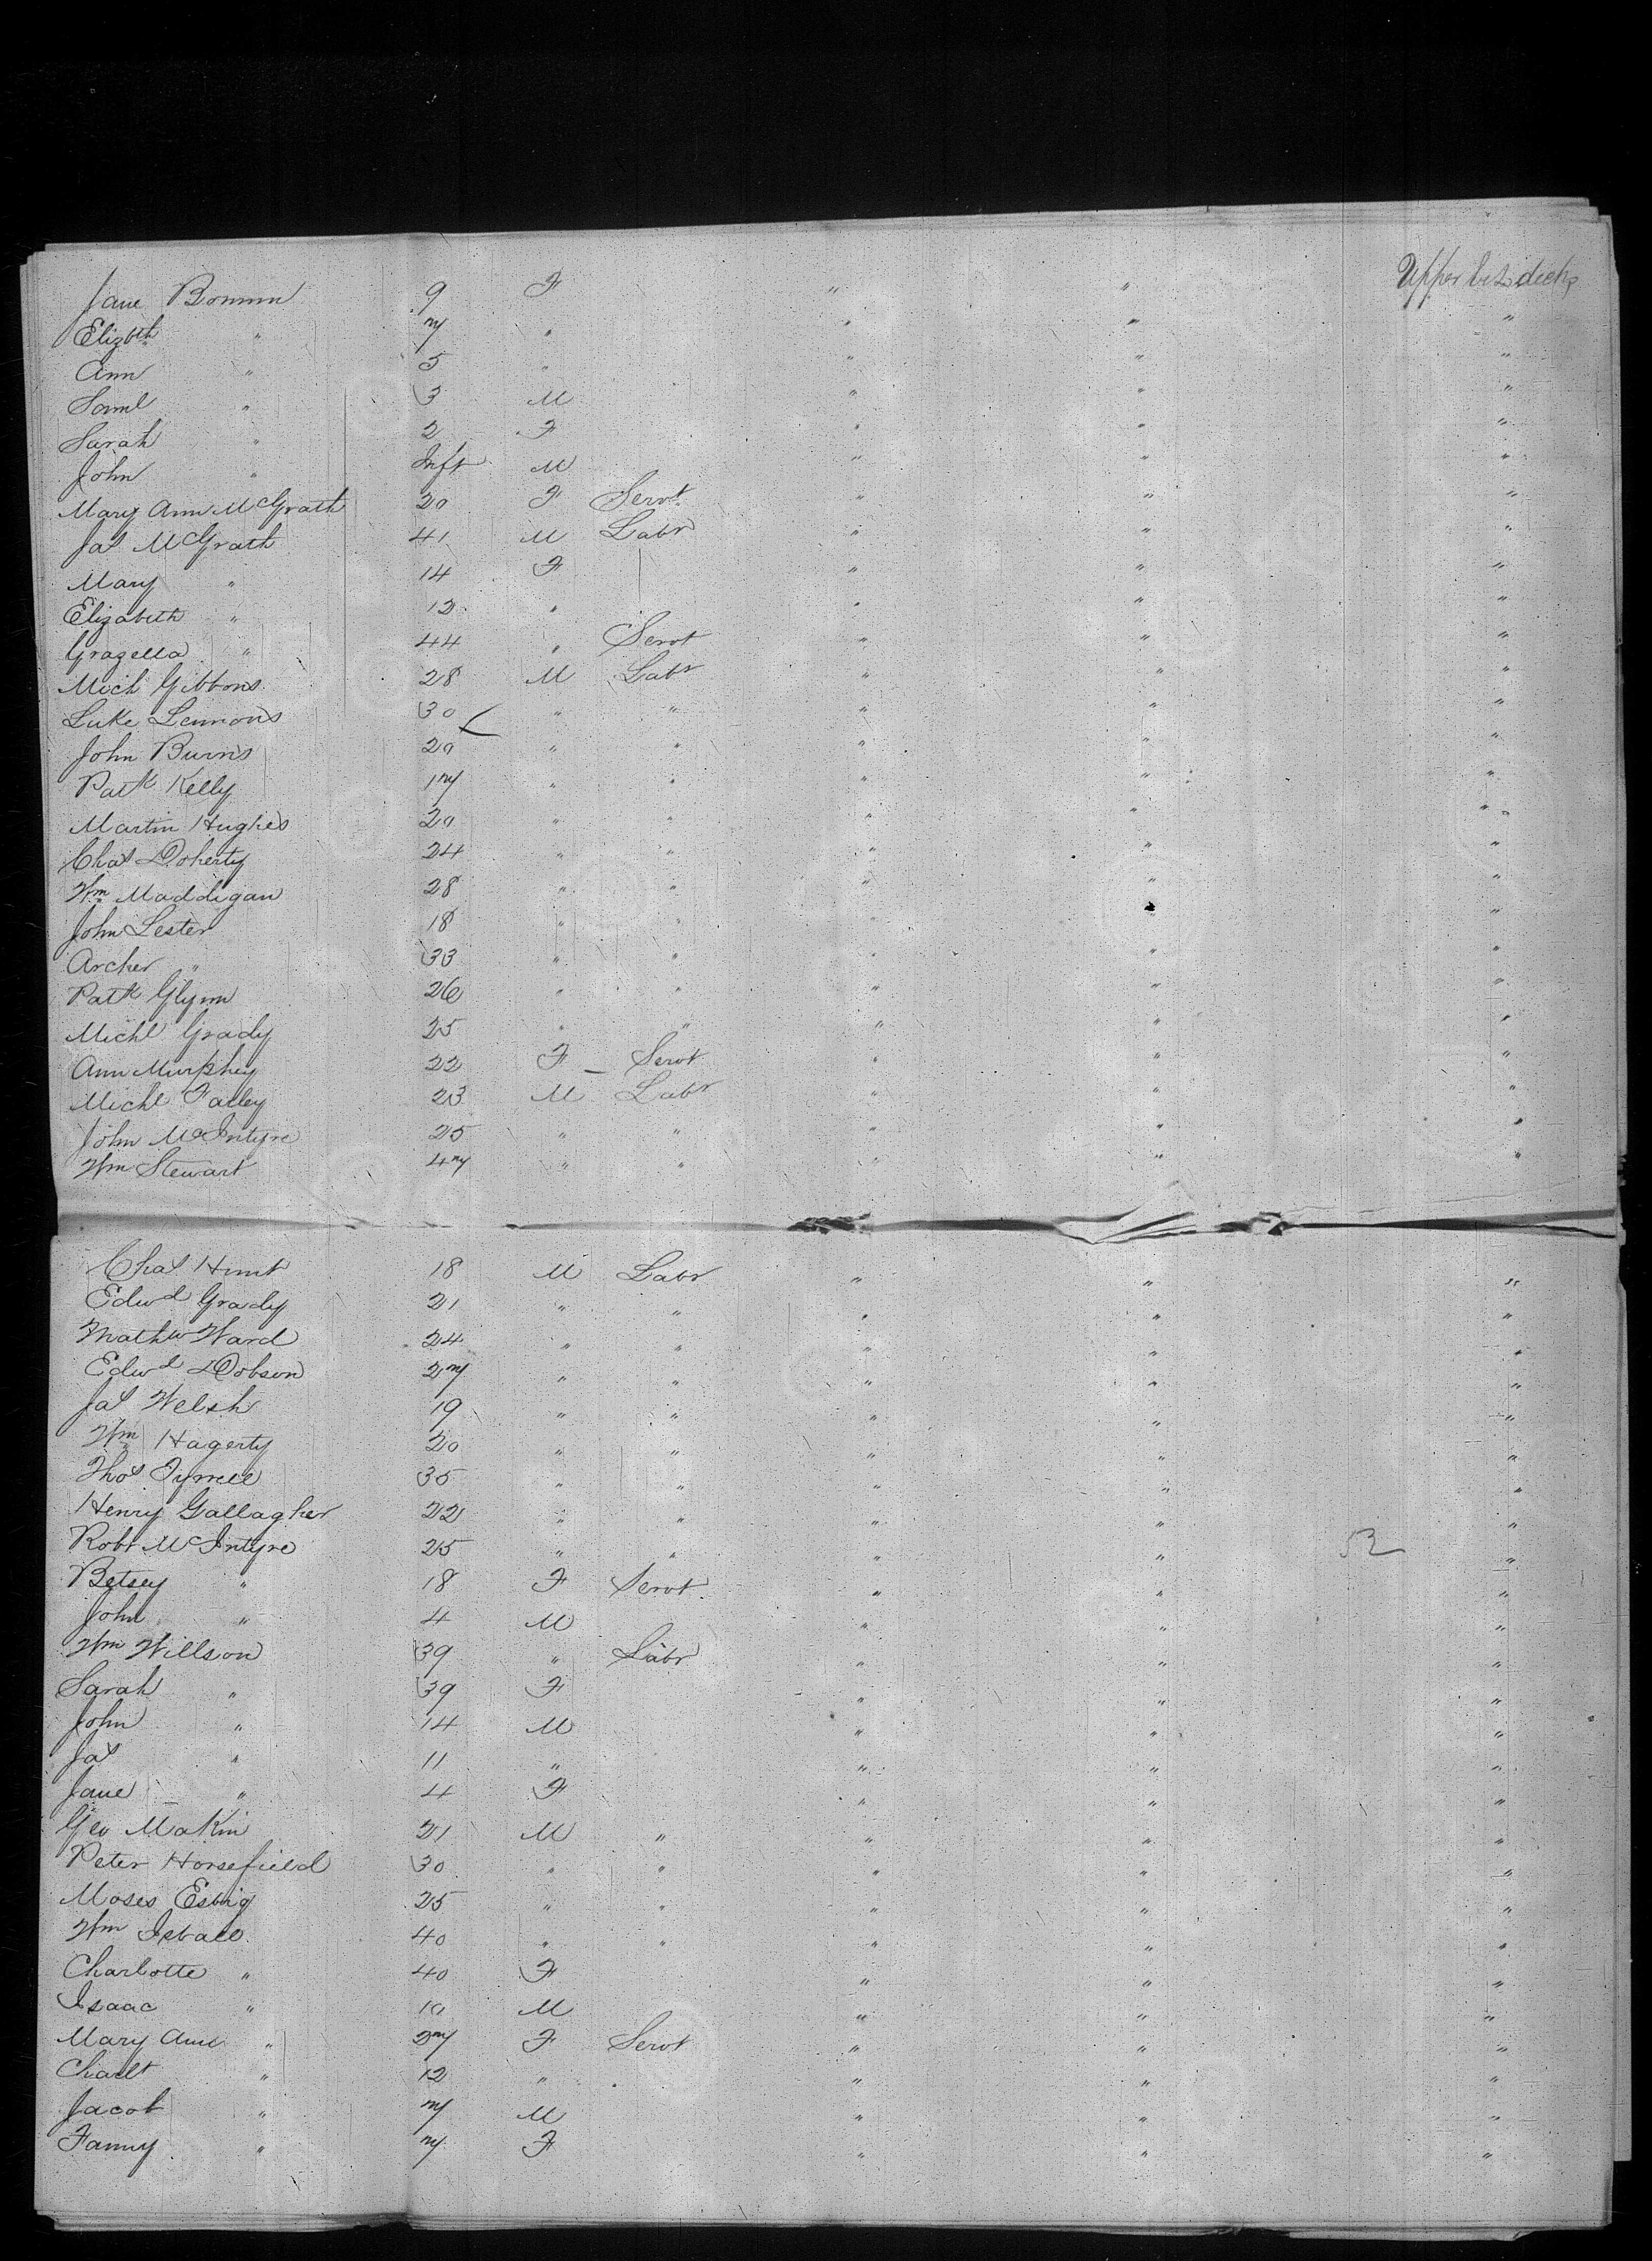 Jane Bowman 9 F " " Upper bet decks
Elizbth " 7 " " " "
Ann " 5 " " " "
Saml " 3 M " " "
Sarah " 2 F " " "
John " Inft M " " "
Mary Ann McGrath 20 F Servt " " "
Jas McGrath 41 M Labr " " "
Mary " 14 F " " "
Elizabeth " 12 " " " "
Grazella " 44 " Servt " " "
Mich Gibbons 28 M Labr " " "
Luke Lennons 30 " " " " "
John Burns 20 " " " " "
Patk Kelly 17 " " " " "
Martin Hughes 20 " " " " "
Chas Doherty 24 " " " " "
Wm Maddigan 28 " " " " "
John Lester 18 " " " " "
Archer " 33 " " " " "
Patk Glynn 26 " " " " "
Michl Grady 25 " " " " "
Ann Murphey 22 F Servt " " "
Michl Falley 23 M Labr " " "
John McIntyre 25 " " " " "
Wm Stewart 47 " " " " "
Chas Hunt 18 M Labr " " "
Edwd Grady 21 " " " " "
Mathw Ward 24 " " " " "
Edwd Dobson 27 " " " " "
Jas Welsh 19 " " " " "
Wm Hagerty 20 " " " " "
Thos Tyrrell 35 " " " " "
Henry Gallagher 22 " " " " "
Robt McIntyre 25 " " " " 52 "
Betsey " 18 F Servt " " "
John " 4 M " " "
Wm Willson 39 " Labr " " "
Sarah " 39 F " " "
John " 14 M " " "
Jas " 11 " " " "
Jane " 4 F " " "
Geo Makin 21 M " " " "
Peter Horsefield 30 " " " " "
Moses 25 " " " " "
Wm 40 " " " " "
Charlotte " 40 F " " "
Isaac " 10 M " " "
Mary Ann " 27 F Servt " " "
Charlt " 12 " " " "
Jacob " 7 M " " "
Fanny " 7 F " " "